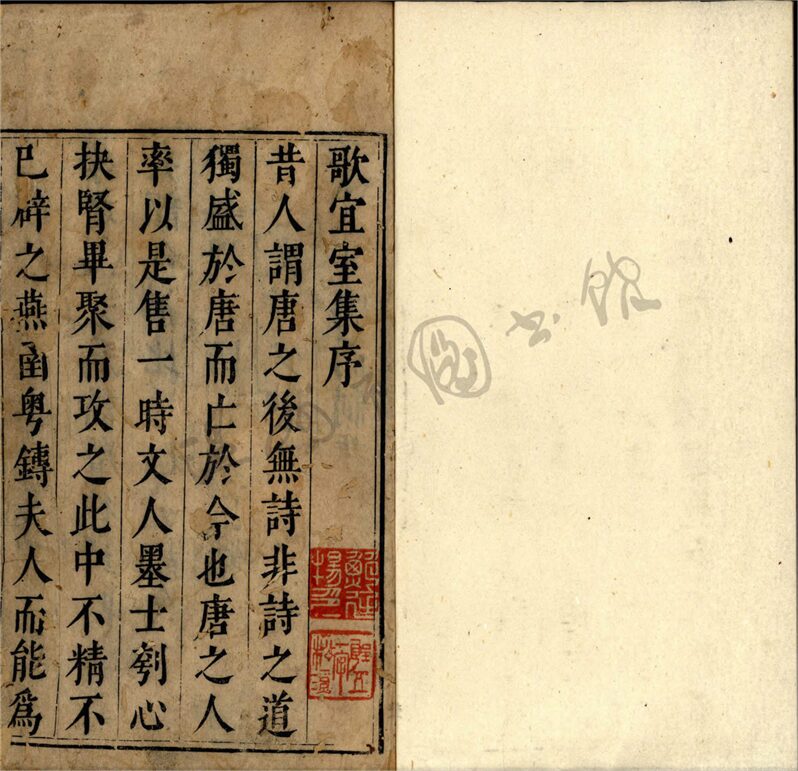 歌宜室集序
昔人謂唐之後無詩非詩之道
獨盛於唐而亡於今也唐之人
率以是售一時文人墨士刳心
抉腎畢聚而攻之此中不精不
已辟之燕函粤鎛夫人而能爲
圖書館